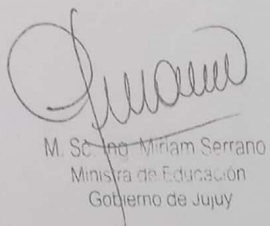 M. Sc. Ing. Miriam Serrano
Ministra de Educación
Gobierno de Jujuy